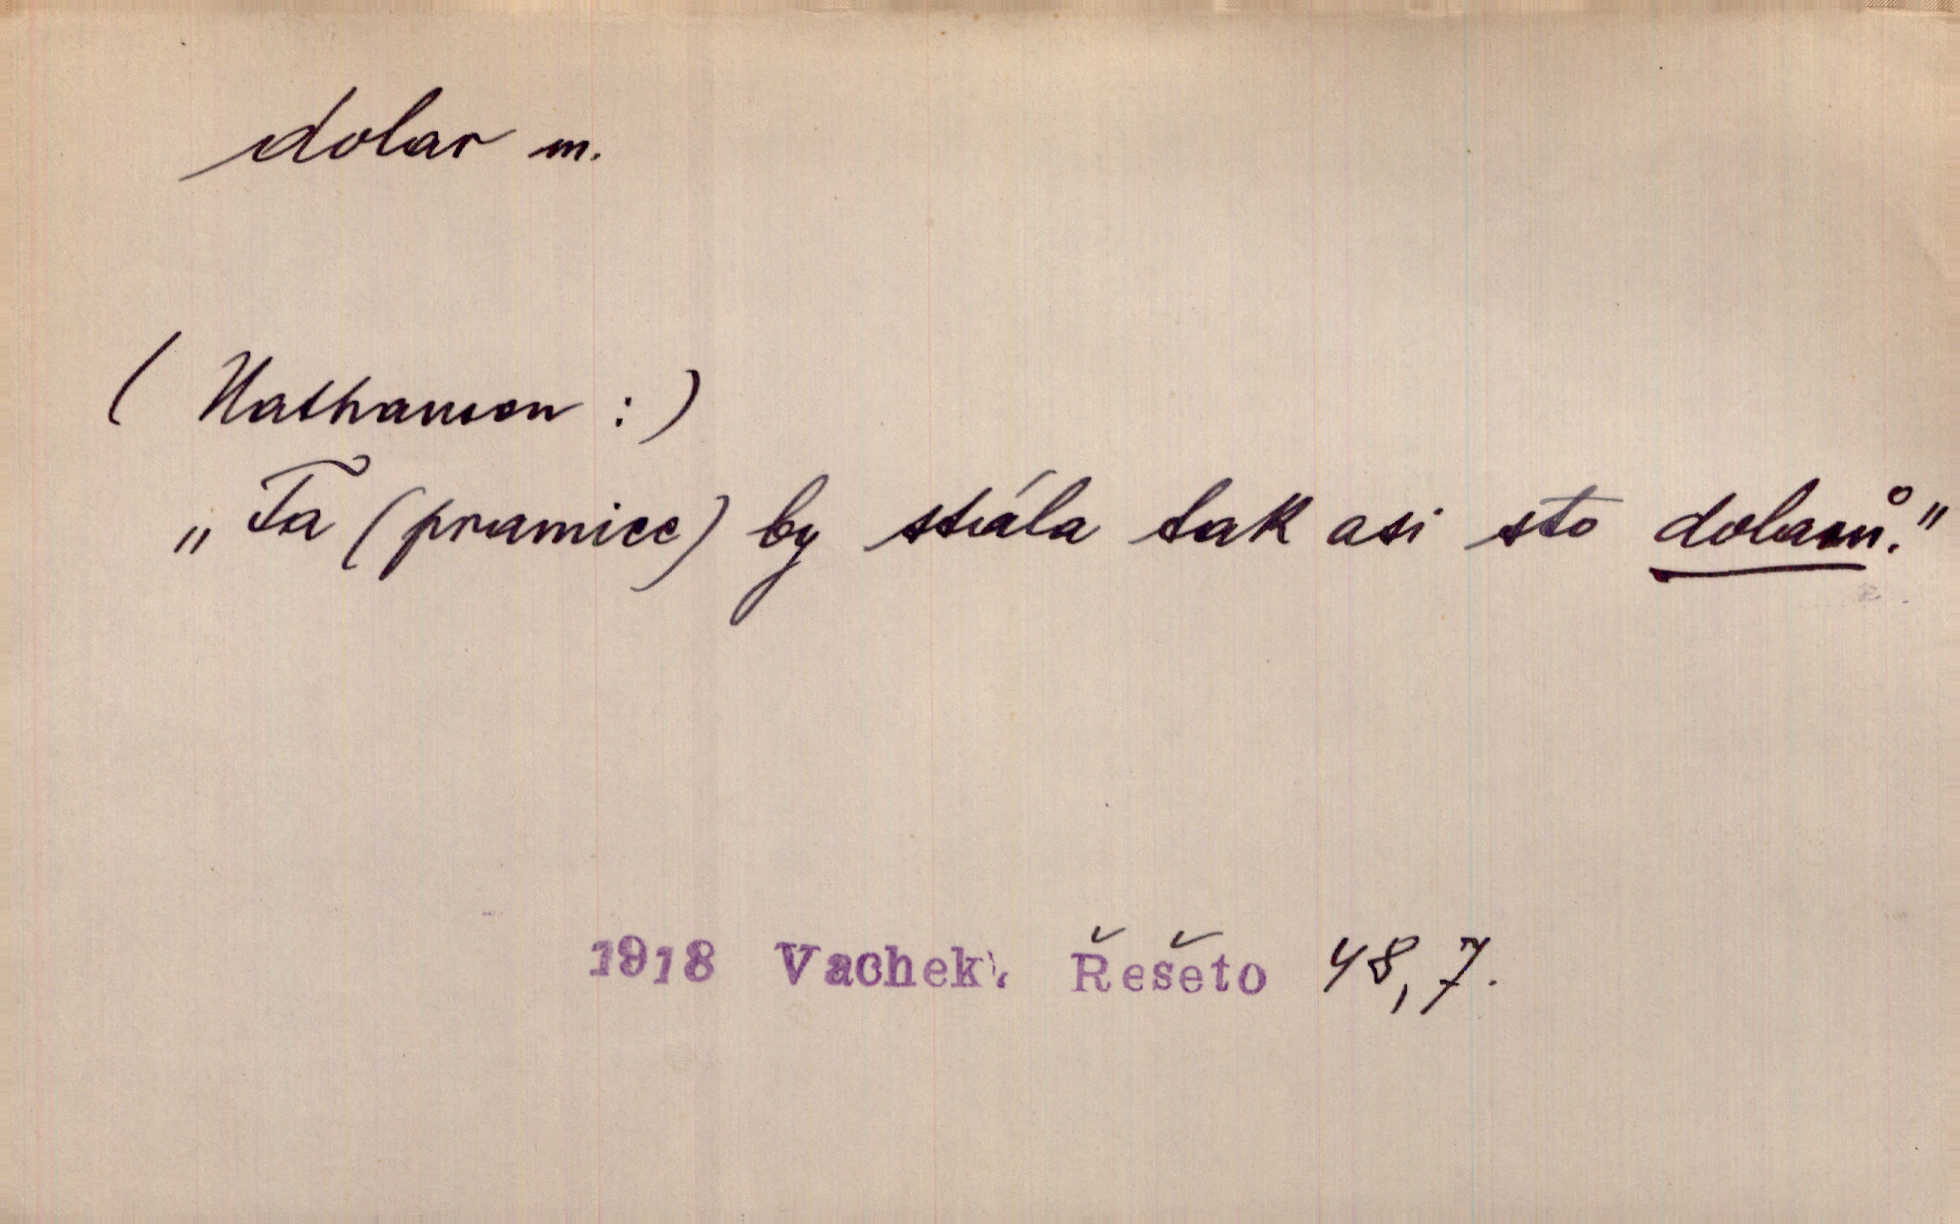 dolar m.
( Nathanson : )
„Ta (pramice) by stála tak asi sto dolarů."
1918 Vachek, Řešeto 48,7.